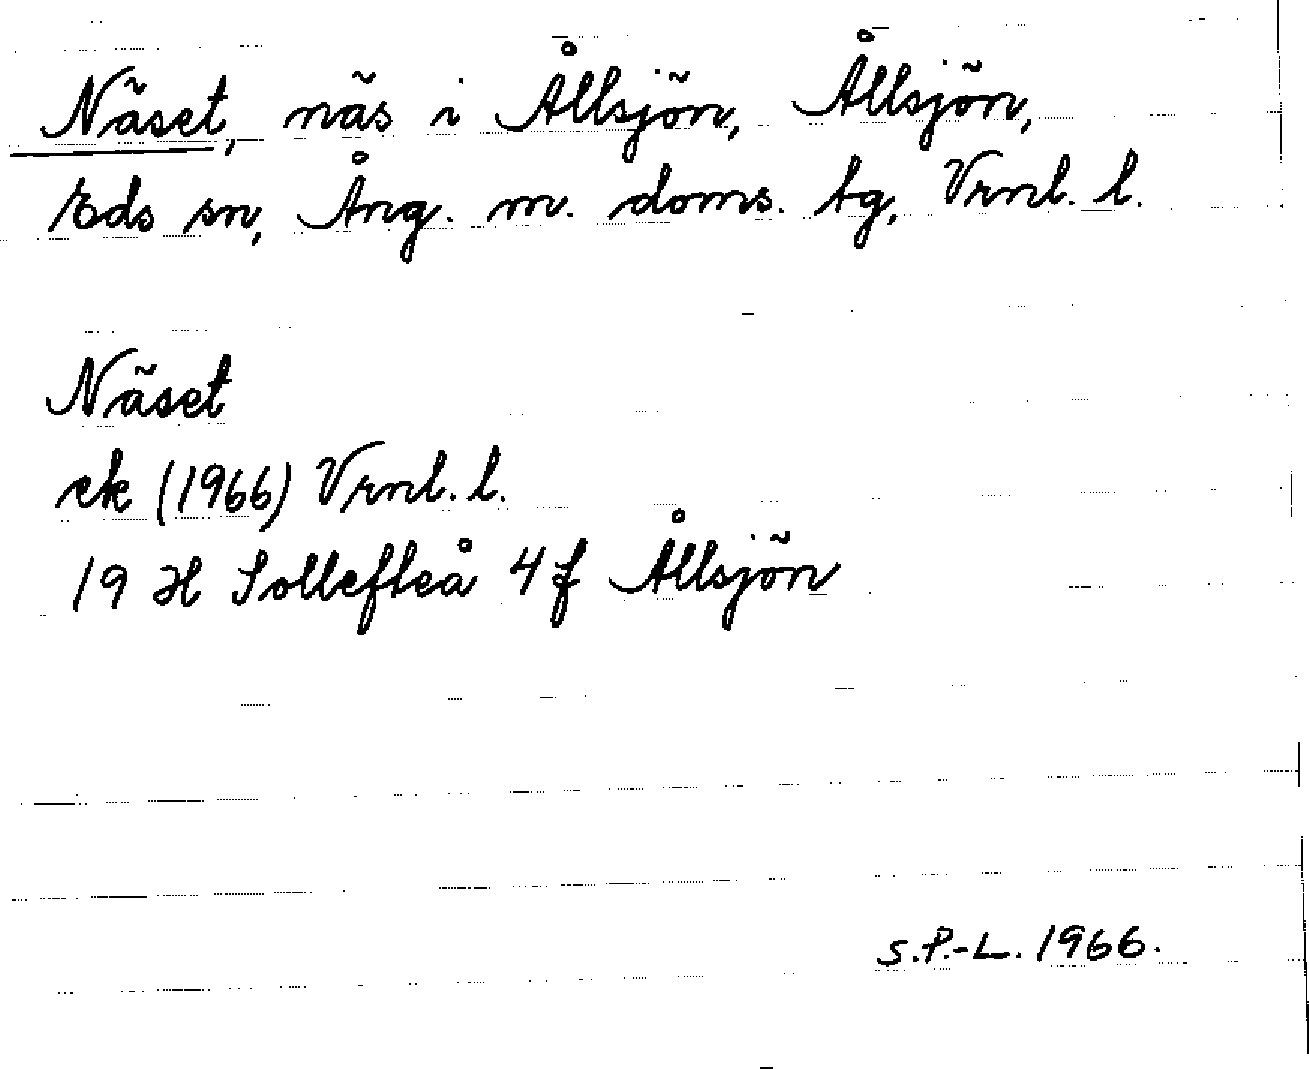 Näset, näs i Ållsjön, Ållsjön,
Eds sn, Ång. m. doms. tg, Vrnl. l.
Näset
ek (1966) Vrnl. l.
19 H Sollefteå 4f Ållsjön
S.P.-L. 1966.